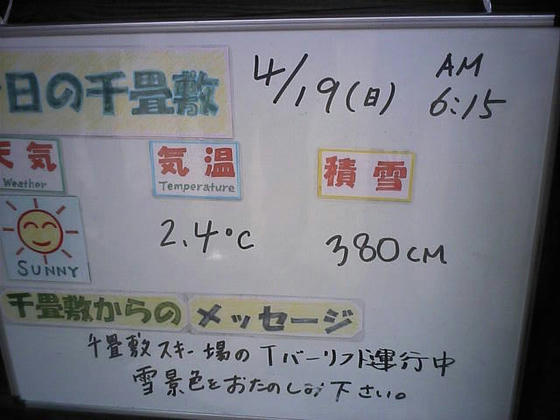 日の千畳敷
4/19(日)
AM
6:15
天気
Weather
気温
Temperature
積雪
SUNNY
2.4°C
380CM
千畳敷からのメッセージ
千畳敷スキー場のTバーリフト運行中
雪景色をおたのしみ下さい。